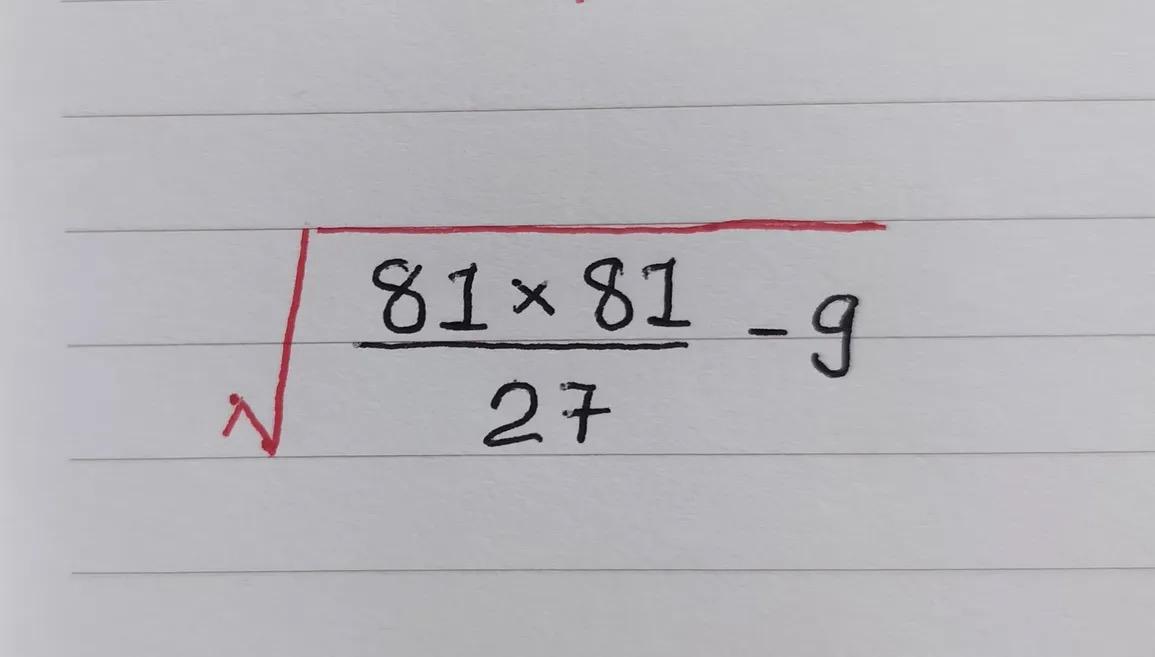 √
81 × 81
27
- 9